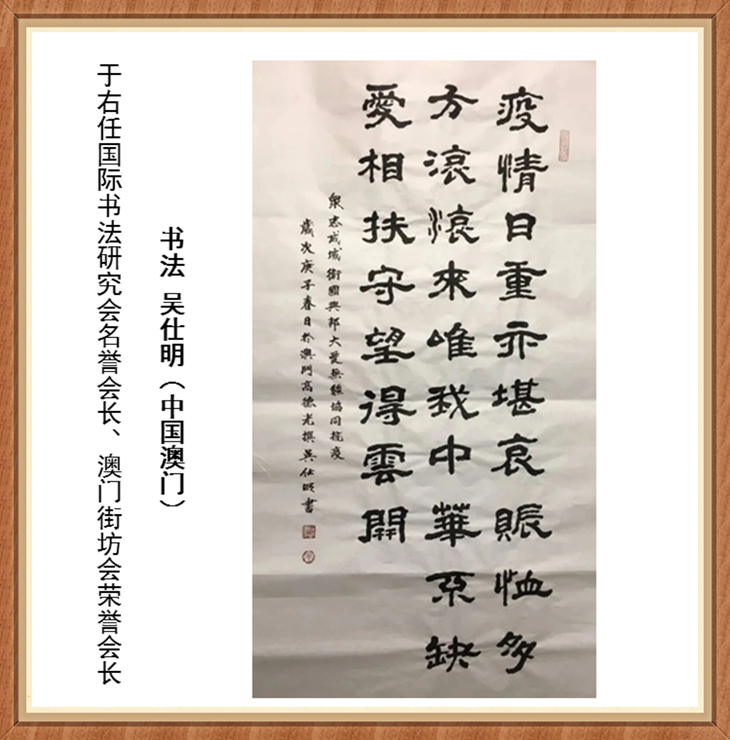 疫情日重亦堪哀賑恤多
方滾滾來唯我中華缺
愛相扶守望得雲開
衆志成城衛國興邦大愛無疆協同抗疫
歲次庚子春日於澳門高德光撰吳仕明書
书法 吴仕明（中国澳门）
于右任国际书法研究会名誉会长、澳门街坊会荣誉会长